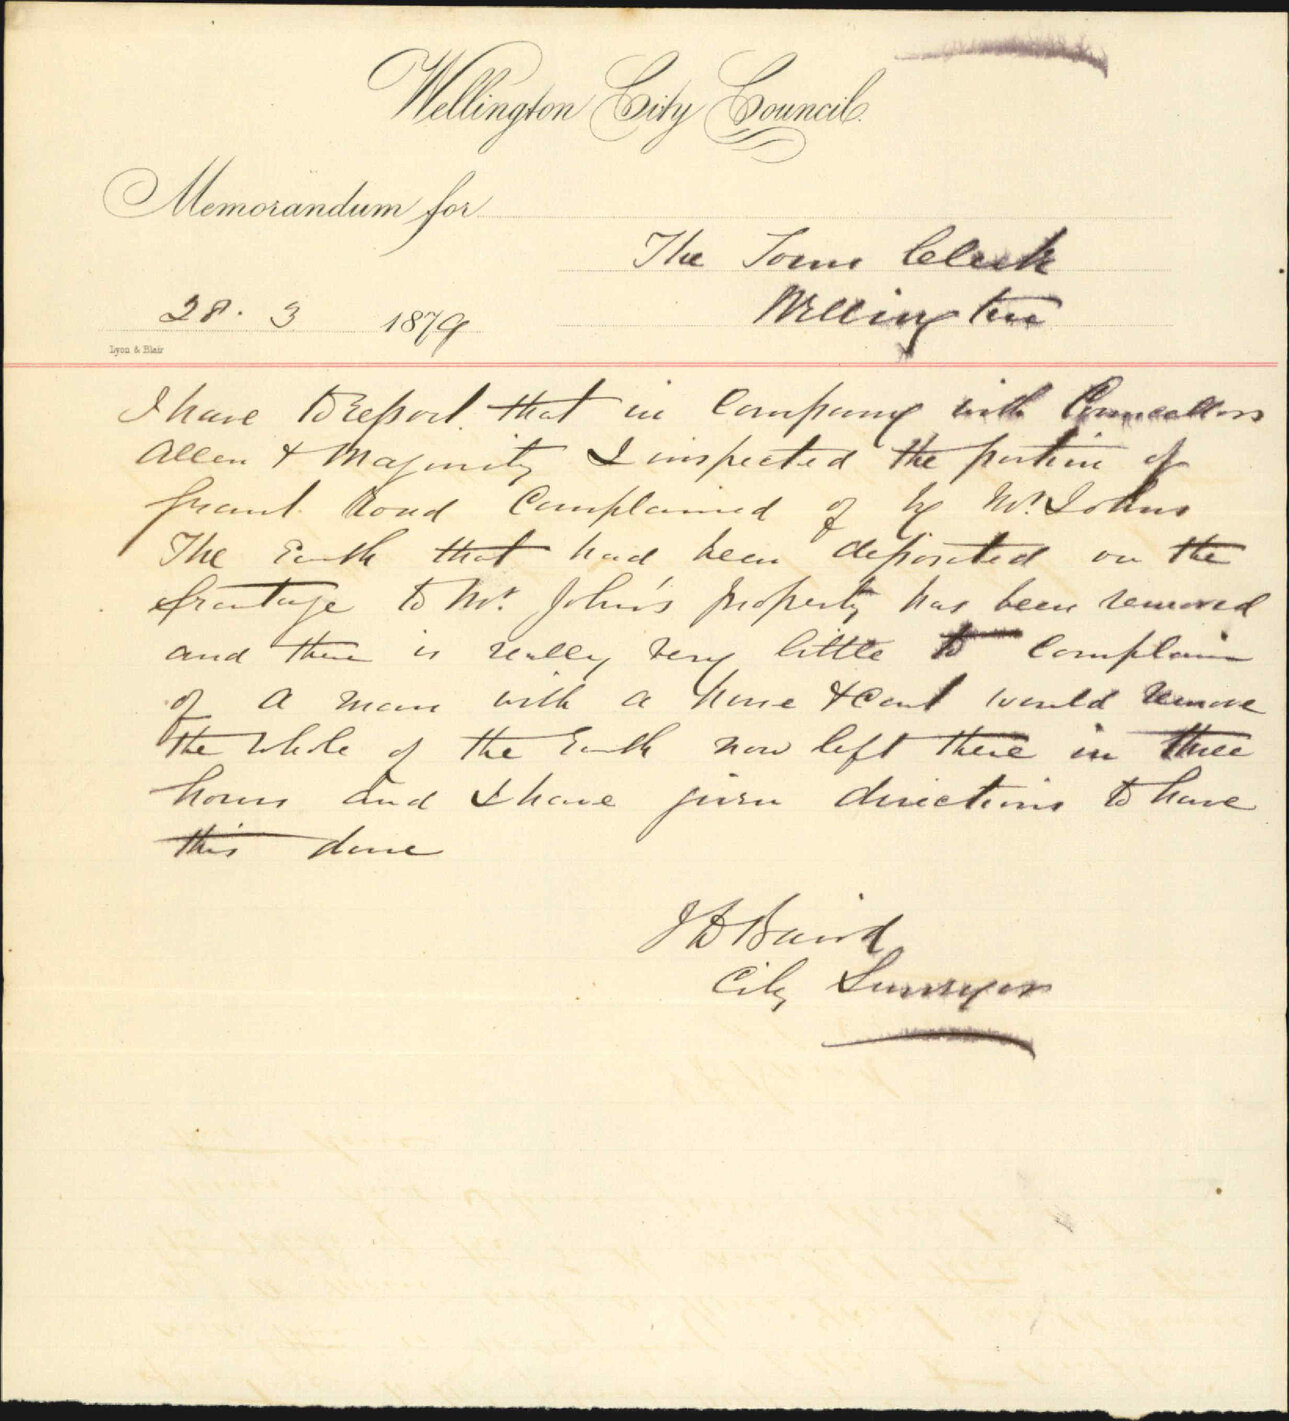 Wellington City Council.
Memorandum for
The Town Clerk
Wellington
28. 3 1879
Lyon & Blair
I have to report that in Company with Councellors
Allen & Maginnity I inspected the portion of
Grant Road Complained of by Mr. Johns
The Earth that had been deposited on the
frontage to Mr. John's property has been removed
and there is really very little to Complain
of a man with a horse & Cart would remove
the whole of the Earth now left there in three
hours and I have given directions to have
this done
J D Baird
City Surveyor